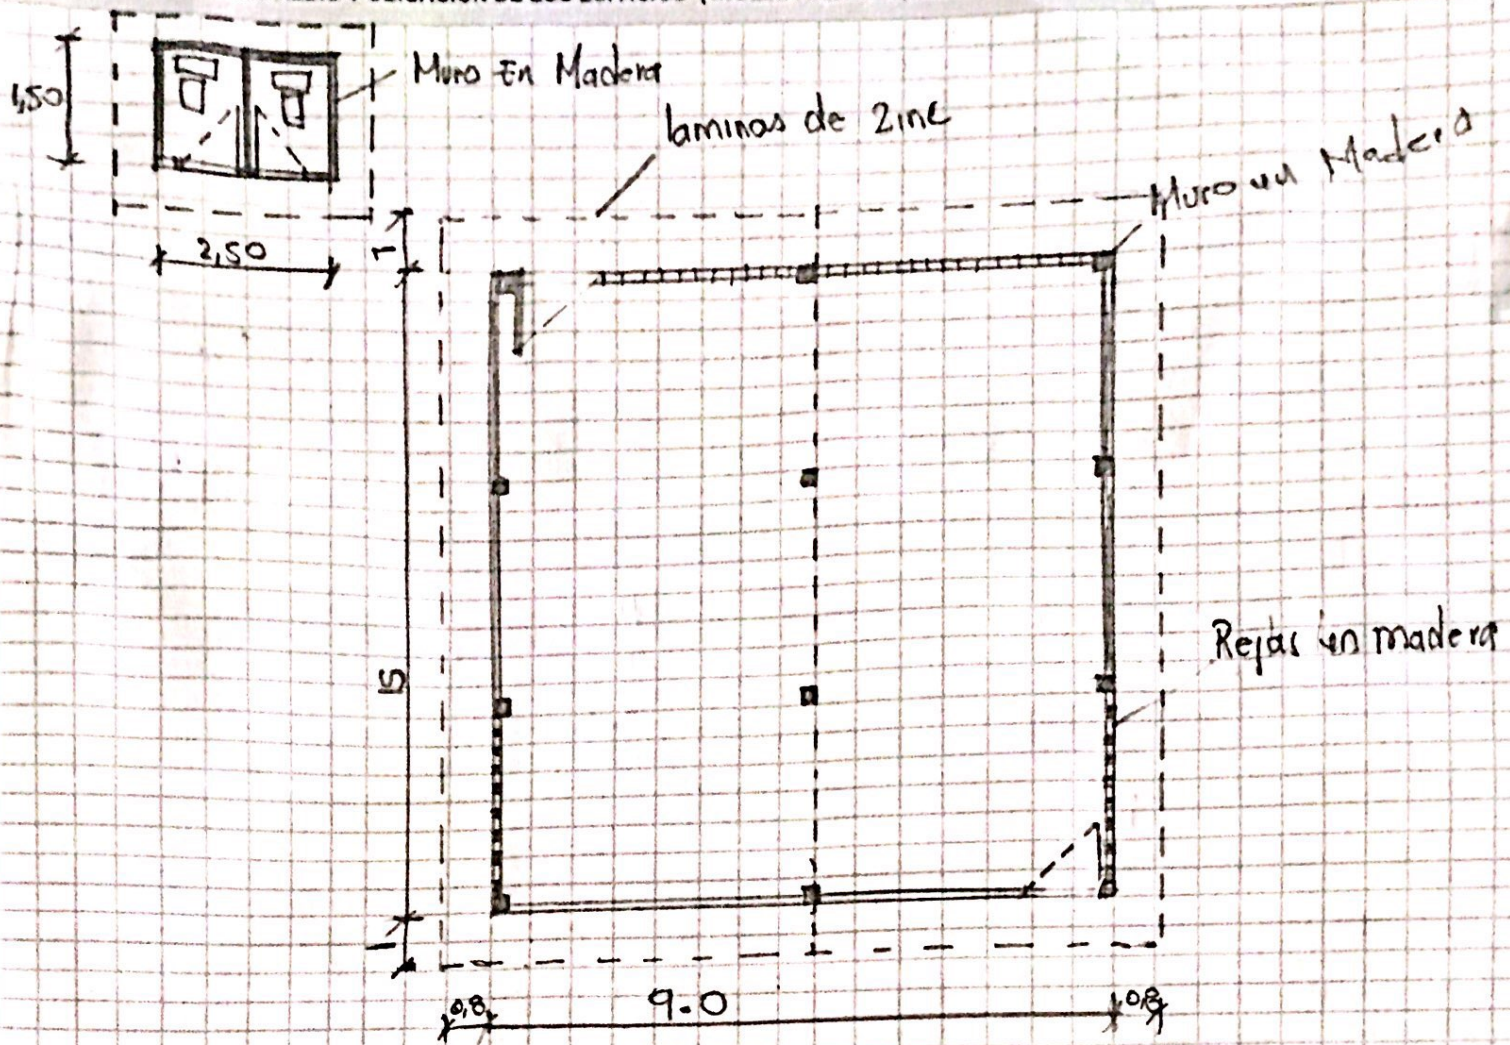 1,50
Muro En Madera
laminas de Zinc
Muro en Madera
2,50
1
15
Rejas en madera
1
0,8
9.0
0,8